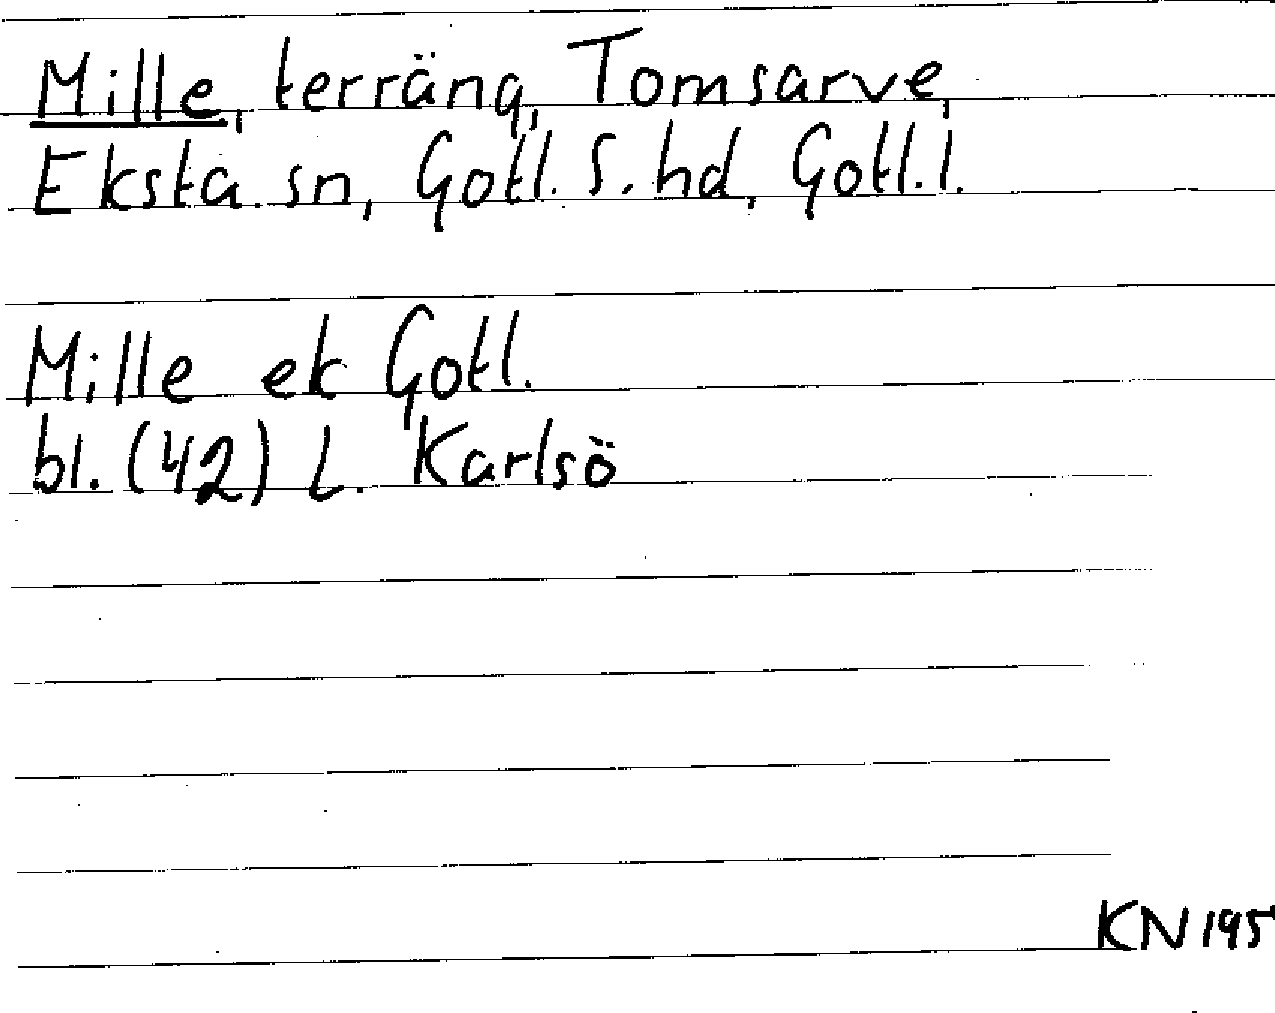 Mille, terräng, Tomsarve,
Eksta sn, Gotl. S. hd, Gotl. l.
Mille ek Gotl.
bl. (42) L. Karlsö
KN 195